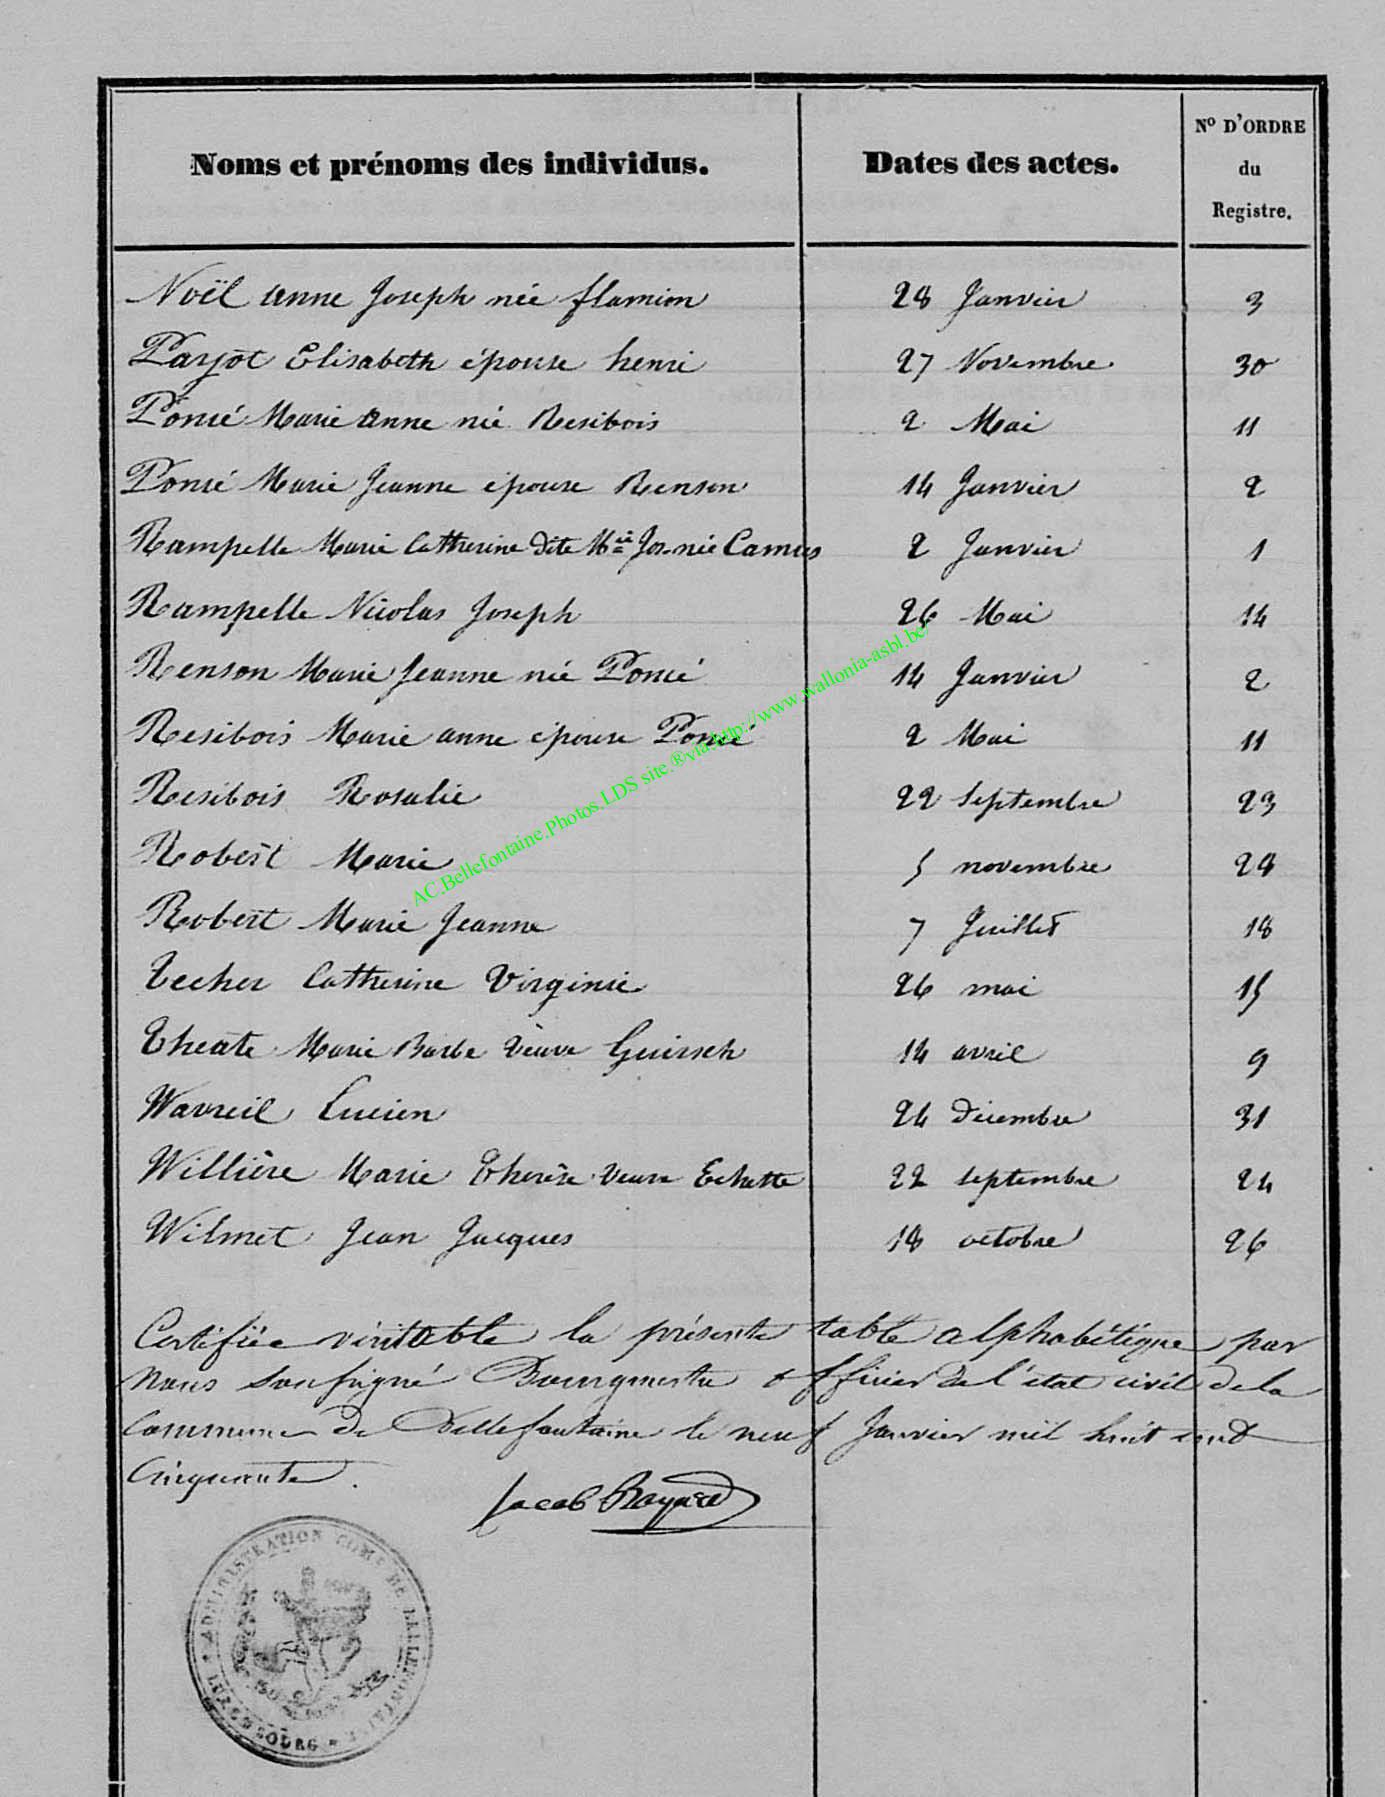 Noms et prénoms des individus. Dates des actes. No D'ORDRE du Registre.
Noël anne Joseph née flamion 28 Janvier 3
Parjot Elisabeth épouse henri 27 Novembre 30
Poncé Marie anne née Resibois 2 Mai 11
Poncé Marie Jeanne épouse Renson 14 Janvier 2
Rampelle Marie Catherine dite Mie Jos. née Camus 2 Janvier 1
Rampelle Nicolas Joseph 26 Mai 14
Renson Marie Jeanne née Poncé 14 Janvier 2
Resibois Marie anne épouse Poncé 2 Mai 11
Resibois Rosalie 22 Septembre 23
Robert Marie 5 novembre 28
Robert Marie Jeanne 7 Juillet 18
Techer Catherine Virginie 26 mai 15
Theate Marie Barbe veuve Guirsch 14 avril 9
Wavreil Lucien 24 Décembre 31
Willière Marie Thérèse veuve Echette 22 septembre 24
Wilmet Jean Jacques 18 octobre 26
Certifiée véritable la présente table alphabétique par
Nous soussigné Bourgmestre officier de l'état civil de la
Commune de Bellefontaine le neuf Janvier mil huit cent
Cinquante.
Jacob Bayard
ADMINISTRATION COMle DE BELLEFONTAINE * LUXEMBOURG *
AC.Bellefontaine.Photos.LDS site.®via http://www.wallonia-asbl.be/